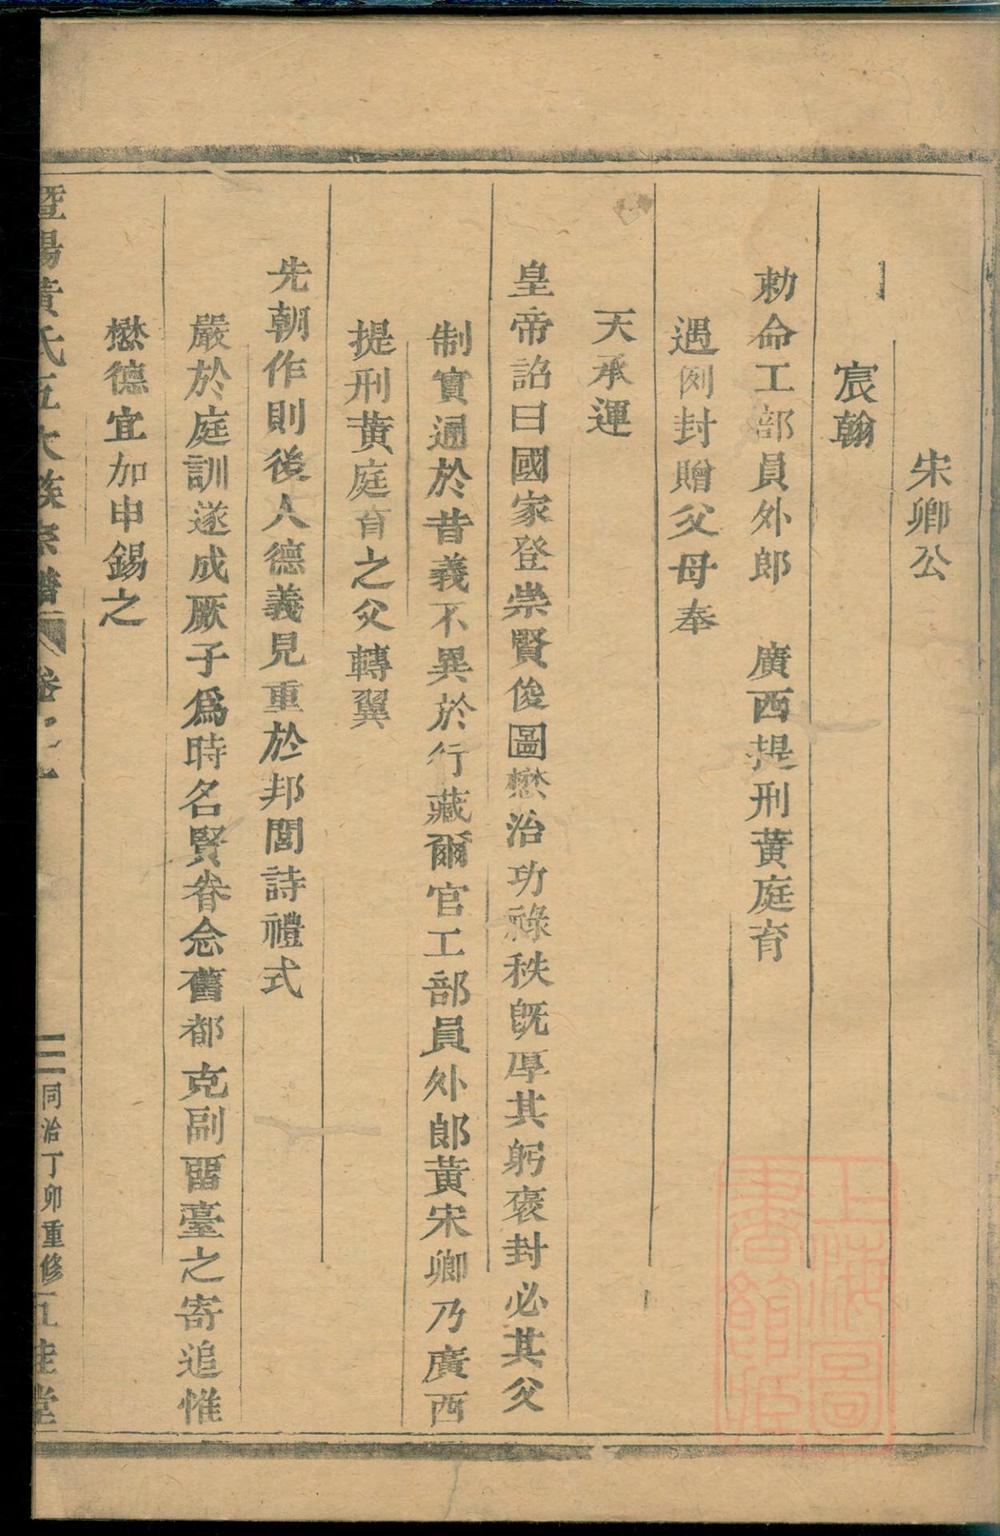 宋卿公
宸翰
勅命工部員外郎 廣西提刑黃庭育
遇例封贈父母奉
天承運
皇帝詔曰國家登崇賢俊圖懋治功祿秩旣厚其躬褒封必其父
制實通於昔義不異於行藏爾官工部員外郎黃宋卿乃廣西
提刑黃庭育之父轉翼
先朝作則後人德義見重於邦閭詩禮式
嚴於庭訓遂成厥子爲時名賢眷念舊都克副畱臺之寄追惟
懋德宜加申錫之
暨陽黃氏五大族宗譜 卷之 二 同治丁卯重修 五桂堂
上海圖書館藏